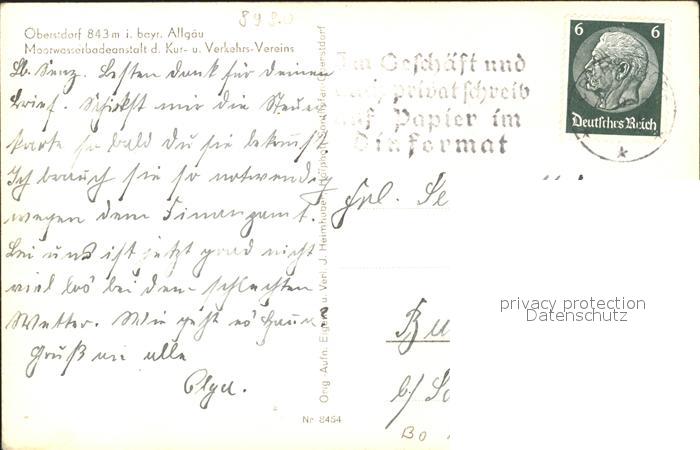 8980
Oberstdorf 843 m i. bayr. Allgäu
Moorwasserbadeanstalt d. Kur- u. Verkehrs-Vereins
Lb. Senz. Besten dank für deinen
Brief. Schickst mir die Steuer
karte so bald du sie bekommst
Ich brauch sie so notwendig
wegen dem Finanzamt.
Bei uns ist jetzt grad nicht
viel los bei dem schlechten
Wetter. Wie geht es
Gruß an alle
Olga.
Orig.-Aufn. Eigent. u. Verl. J. Heimhuber, Hofphot. Sonthofen-Oberstdorf
Nr 8454
Im Geschäft und
auch privat schreib
auf Papier im
Dinformat
6 6
Deutsches Reich
Frl. Se
Bu
b/ So
Bo
privacy protection
Datenschutz